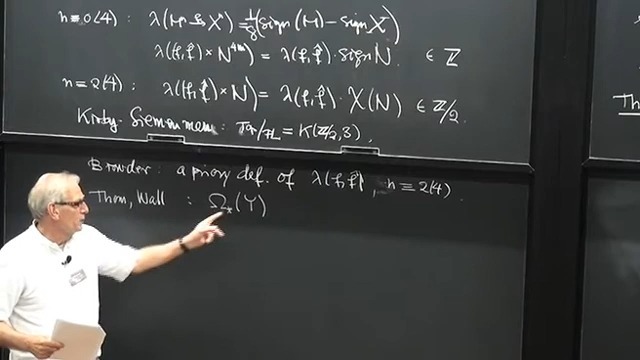 n ≡ 0(4) : λ(M → X) = 1/8 (Sign(M) − Sign X)
λ((f, f̂) × N^4m) = λ(f, f̂) · Sign N. ∈ Z
n ≡ 2(4) : λ((f, f̂) × N) = λ(f, f̂) · χ(N) ∈ Z/2.
Kirby-Siebenmann : Top/PL = K(Z/2, 3).
Browder : a priory def. of λ(f, f̂), n ≡ 2(4).
Thom, Wall : Ω*(Y)
Th